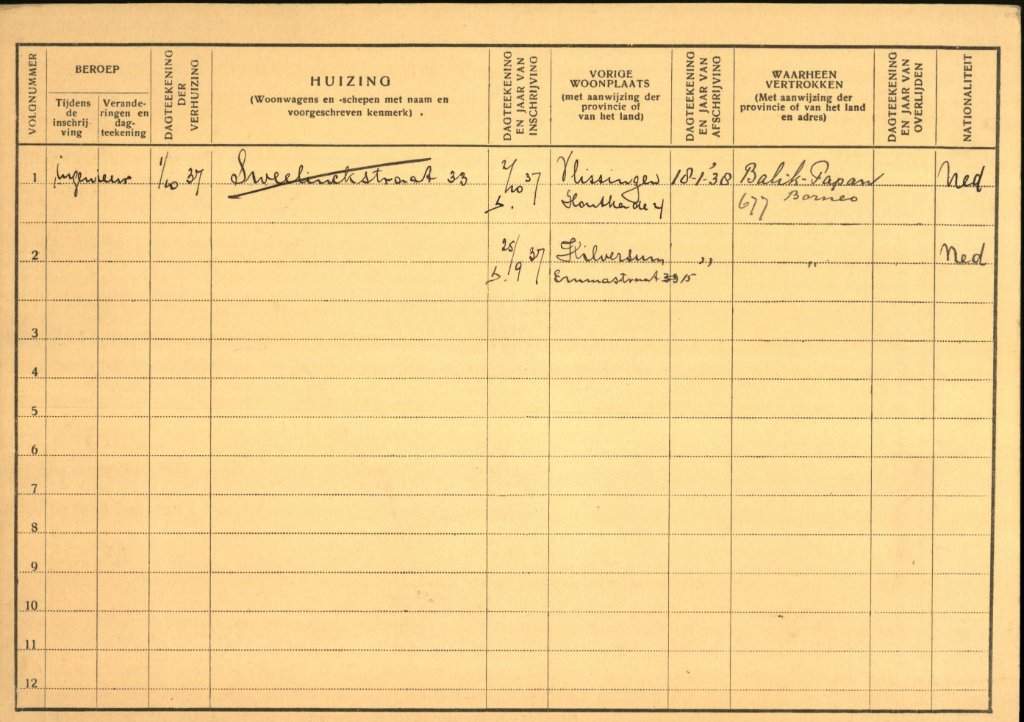 VOLGNUMMER
BEROEP
Tijdens
de
inschrij-
ving
Verande-
ringen en
dag-
teekening
DAGTEEKENING
DER
VERHUIZING
HUIZING
(Woonwagens en -schepen met naam en
voorgeschreven kenmerk) .
DAGTEEKENING
EN JAAR VAN
INSCHRIJVING
VORIGE
WOONPLAATS
(met aanwijzing der
provincie of
van het land)
DAGTEEKENING
EN JAAR VAN
AFSCHRIJVING
WAARHEEN
VERTROKKEN
(Met aanwijzing der
provincie of van het land
en adres)
DAGTEEKENING
EN JAAR VAN
OVERLIJDEN
NATIONALITEIT
1 ingenieur 1/10 37 Sweelinckstraat 33 37 Vlissingen 18-1-'38 Balik-Papan Ned
b. Houtkade 4 677 Borneo
2 25/9 37 Hilversum ,, ,, Ned
b. Emmastraat
3
4
5
6
7
8
9
10
11
12